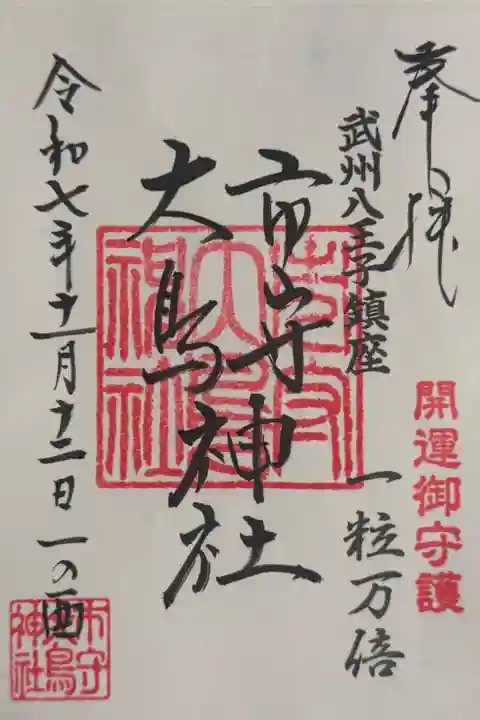 奉拝
武州八王子鎮座
開運御守護
一粒万倍
市守
大鳥神社
令和七年十一月十二日 一の酉
市守
大鳥
神社